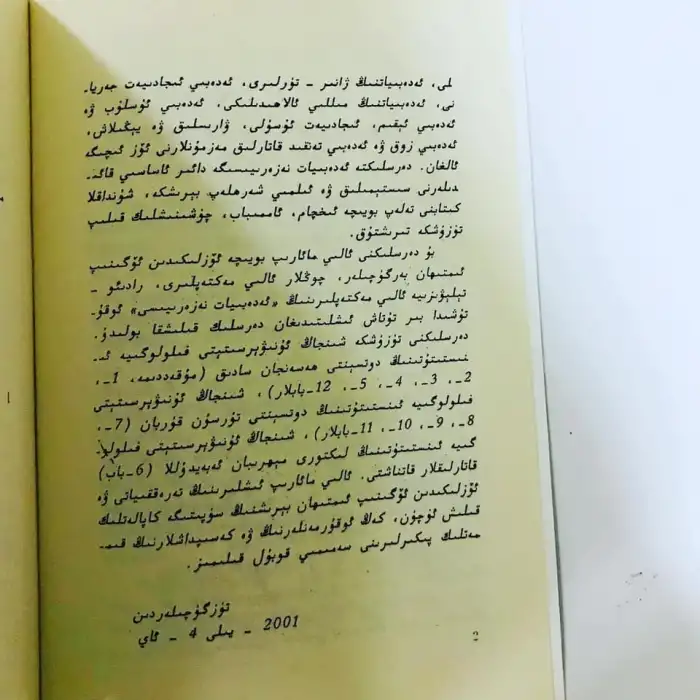 لى، ئەدەبىياتنىڭ ژانىر – تۈرلىرى، ئەدەبىي ئىجادىيەت جەريا-
نى، ئەدەبىياتنىڭ مىللىي ئالاھىدىلىكى، ئەدەبىي ئۇسلۇب ۋە
ئەدەبىي ئېقىم، ئىجادىيەت ئۇسۇلى، ۋارىسلىق ۋە يېڭىلاش،
ئەدەبىي زوق ۋە ئەدەبىي تەنقىد قاتارلىق مەزمۇنلارنى ئۆز ئىچىگە
ئالغان. دەرسلىكتە ئەدەبىيات نەزەرىيىسىگە دائىر ئاساسىي قائى-
دىلەرنى سىستېمىلىق ۋە ئىلمىي شەرھلەپ بېرىشكە، شۇنداقلا
كىتابنى تەلەپ بويىچە ئىخچام، ئاممىباب، چۈشىنىشلىك قىلىپ
تۈزۈشكە تىرىشتۇق.
بۇ دەرسلىكنى ئالىي مائارىپ بويىچە ئۆزلىكىدىن ئۆگىنىپ
ئىمتىھان بەرگۈچىلەر، چوڭلار ئالىي مەكتەپلىرى، رادىئو –
تېلېۋىزىيە ئالىي مەكتەپلىرىنىڭ «ئەدەبىيات نەزەرىيىسى» ئوقۇ-
تۇشىدا بىر تۇتاش ئىشلىتىدىغان دەرسلىك قىلىشقا بولىدۇ.
دەرسلىكنى تۈزۈشكە شىنجاڭ ئۇنىۋېرسىتېتى فىلولوگىيە ئى-
نىستىتۇتىنىڭ دوتسېنتى ھەسەنجان سادىق (مۇقەددىمە، 1-،
2-، 3-، 4-، 5-، 12-بابلار)، شىنجاڭ ئۇنىۋېرسىتېتى
فىلولوگىيە ئىنستىتۇتىنىڭ دوتسېنتى تۇرسۇن قۇربان (7-،
8-، 9-، 10-، 11-بابلار)، شىنجاڭ ئۇنىۋېرسىتېتى فىلولو-
گىيە ئىنستىتۇتىنىڭ لېكتورى مېھرىبان ئەبەيدۇللا (6-باب)
قاتارلىقلار قاتناشتى. ئالىي مائارىپ ئىشلىرىنىڭ تەرەققىياتى ۋە
ئۆزلىكىدىن ئۆگىنىپ ئىمتىھان بېرىشنىڭ سۈپىتىگە كاپالەتلىك
قىلىش ئۈچۈن، كەڭ ئوقۇرمەنلەرنىڭ ۋە كەسىپداشلارنىڭ قىم-
مەتلىك پىكىرلىرىنى سەمىمىي قوبۇل قىلىمىز.
تۈزگۈچىلەردىن
2001 – يىلى 4 – ئاي
2